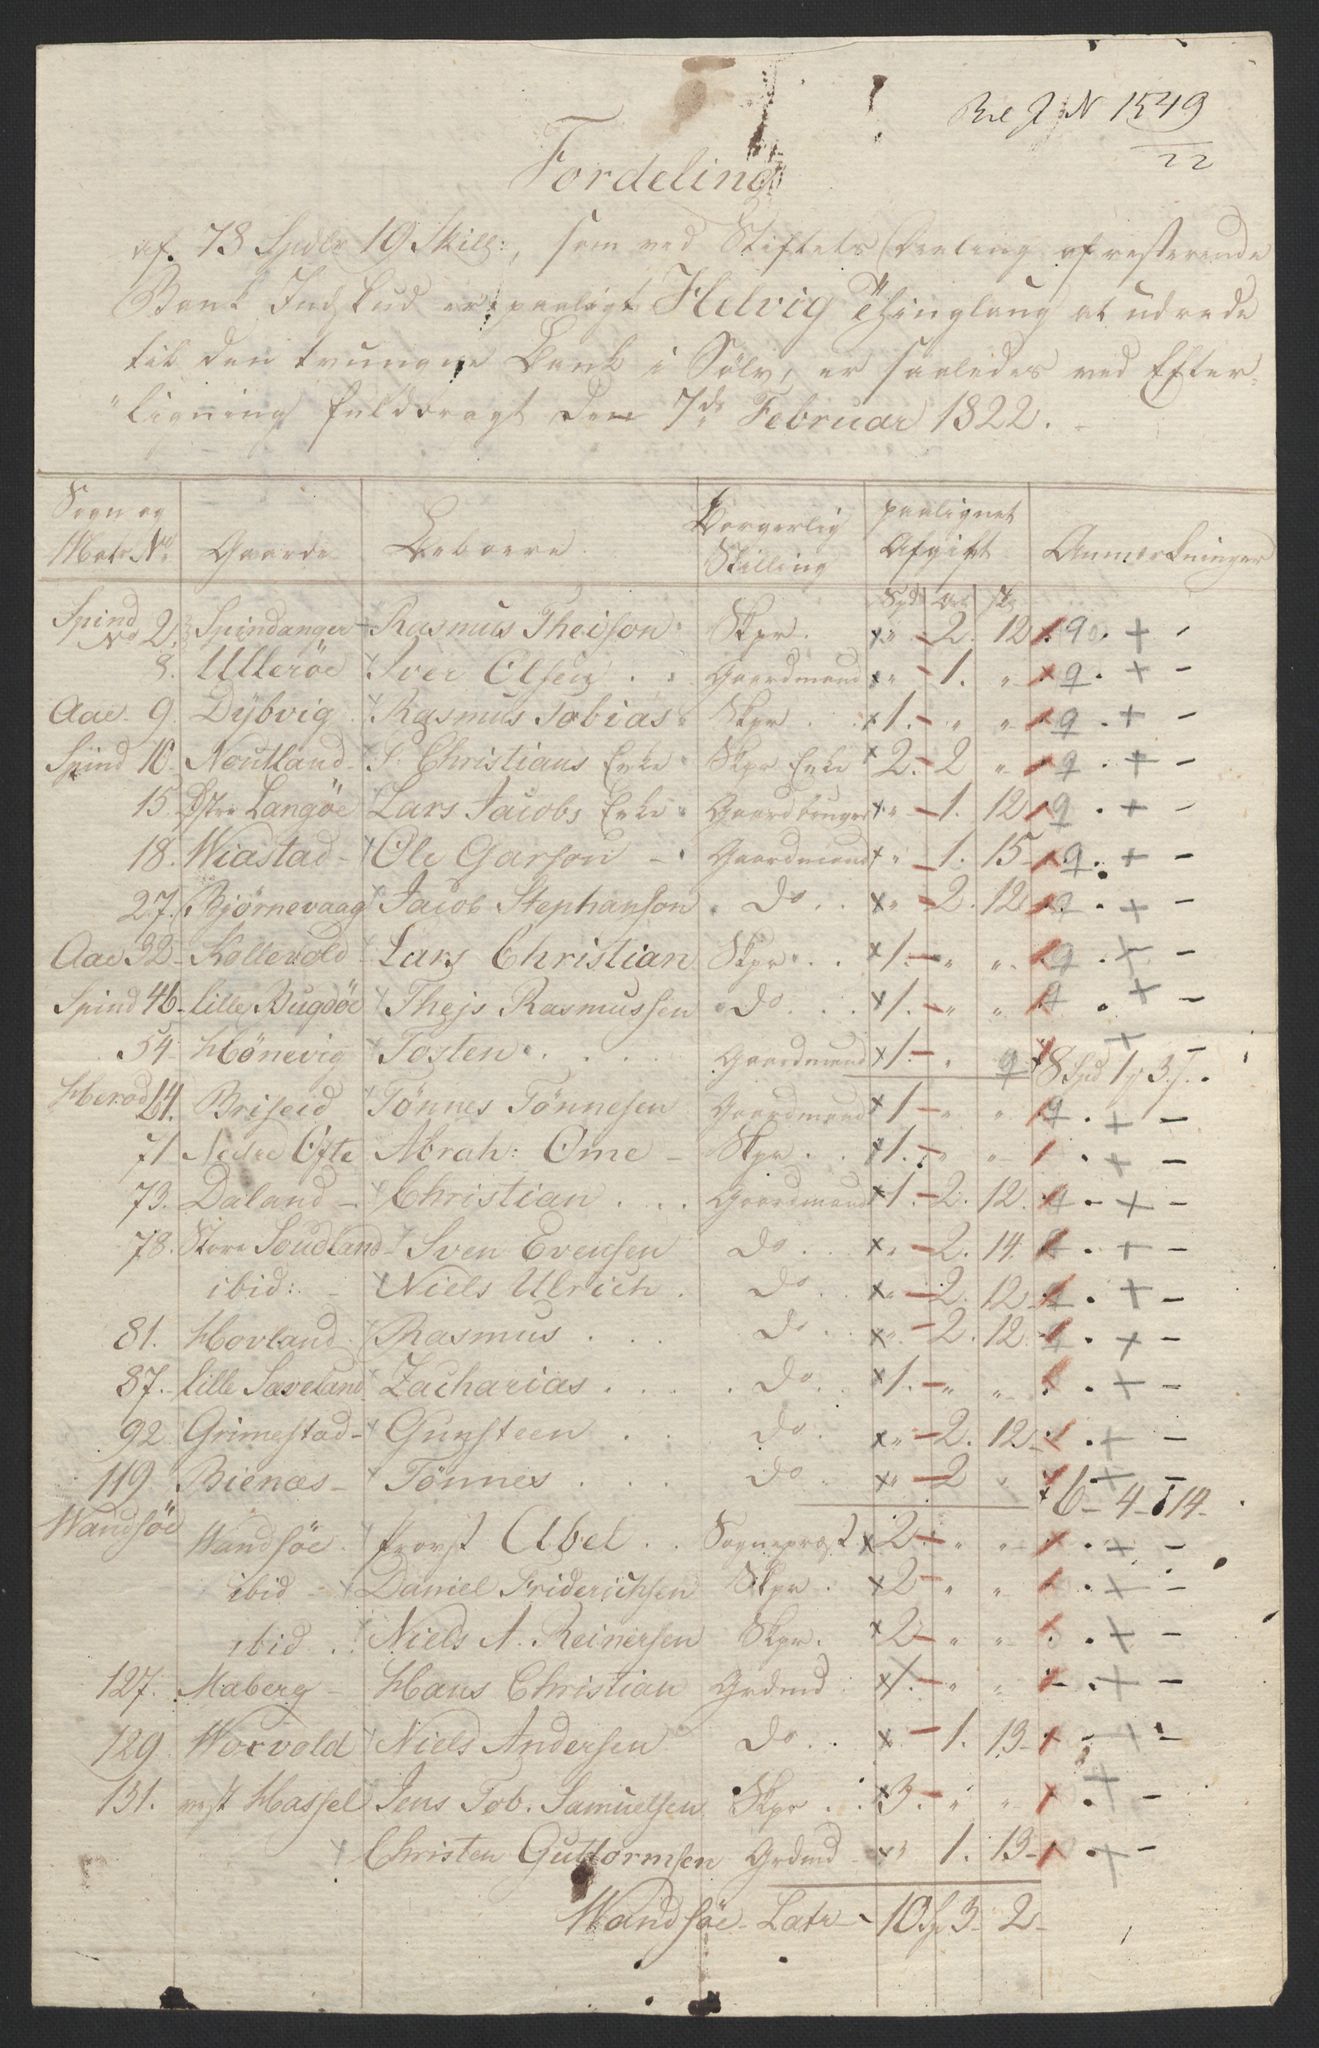 Bil J N 1549
22
Fordeling
af 78 Spdlr 19 Skill:, som ved Stiftets Deeling af resterende
Bank Indskud er paaligt Helvig Thinglaug at udrede
til den trungne Bank i Sølv, er saaledes ved Efter-
ligning fuldbragt den 7de Februar 1822.
Sogn og Matr No Gaarde Beboere Borgerlig Stilling paalignet Afgift Anmærkninger
Spd Ort sk
Spind No 2. Spindanger Rasmus Theison Skpr. " 2. 12 9.
8. Ullerøe Iver Olsen Gaardmand " 1. " 9.
Aae 9 Dybvig Rasmus Tobias Skpr 1. " " 9.
Spind 10 Noutland S. Christians Enke Skpr Enke 2. 2 " 9.
15 Østre Langøe Lars Jacobs Enke Gaardbruger " 1. 12 9.
18. Wiastad Ole Garson Gaardmand " 1. 15 9.
27. Bjørnevaag Jacob Stephanson Do " 2. 12
Aae 32 Kollevold Lars Christian Skpr 1. " " 9.
Spind 46 lille Bugdøe Thejs Rasmussen Do 1. " " 9
54 Hønevig Tosten Gaardmand 1. " 9 8 Spd 1 3
Herad 64. Briseid Tønnes Tønnesen Gaardmand 1 " " 9.
71 Nedre Ofte Abrah: Ome Skpr 1. " "
73. Daland Christian Gaardmand 1. 2. 12
78. Store Soudland Sven Evensen Do " 2. 14
ibid: Niels Ulrich Do " 2. 12
81. Hovland Rasmus Do " 2. 12
87. lille Sæveland Zacharias Do 1. " "
92 Grimestad Gunsteen Do " 2. 12
119 Bienæs Tønnes Do " 2 " 6 4 14
Wandsøe Wandsøe Provst Abel Sognepræst 2 " "
ibid Daniel Friderichsen Skpr 2 " "
ibid Niels A. Reinersen Skpr. 2 " "
127. Maberg Hans Christian Grdmd 1 " "
129 Worvold Niels Andersen Do " 1. 13
131. vest Hassel Jens Tob. Samuelsen Skpr 3. " "
Christen Guttormsen Grdmd " 1. 13
Wandsøe Latr 10 Sp 3 2